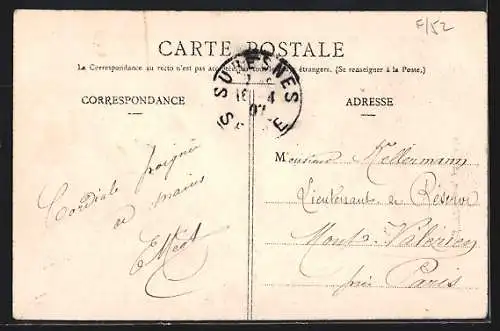 F/52
CARTE POSTALE
La Correspondance au recto n'est pas acceptée par tous les pays étrangers. (Se renseigner à la Poste.)
SURESNES
18 4
07
SEINE
CORRESPONDANCE
ADRESSE
Cordiale poignée
de mains
Monsieur Kellermann
Lieutenant de Réserve
Mont-Valérien
près Paris